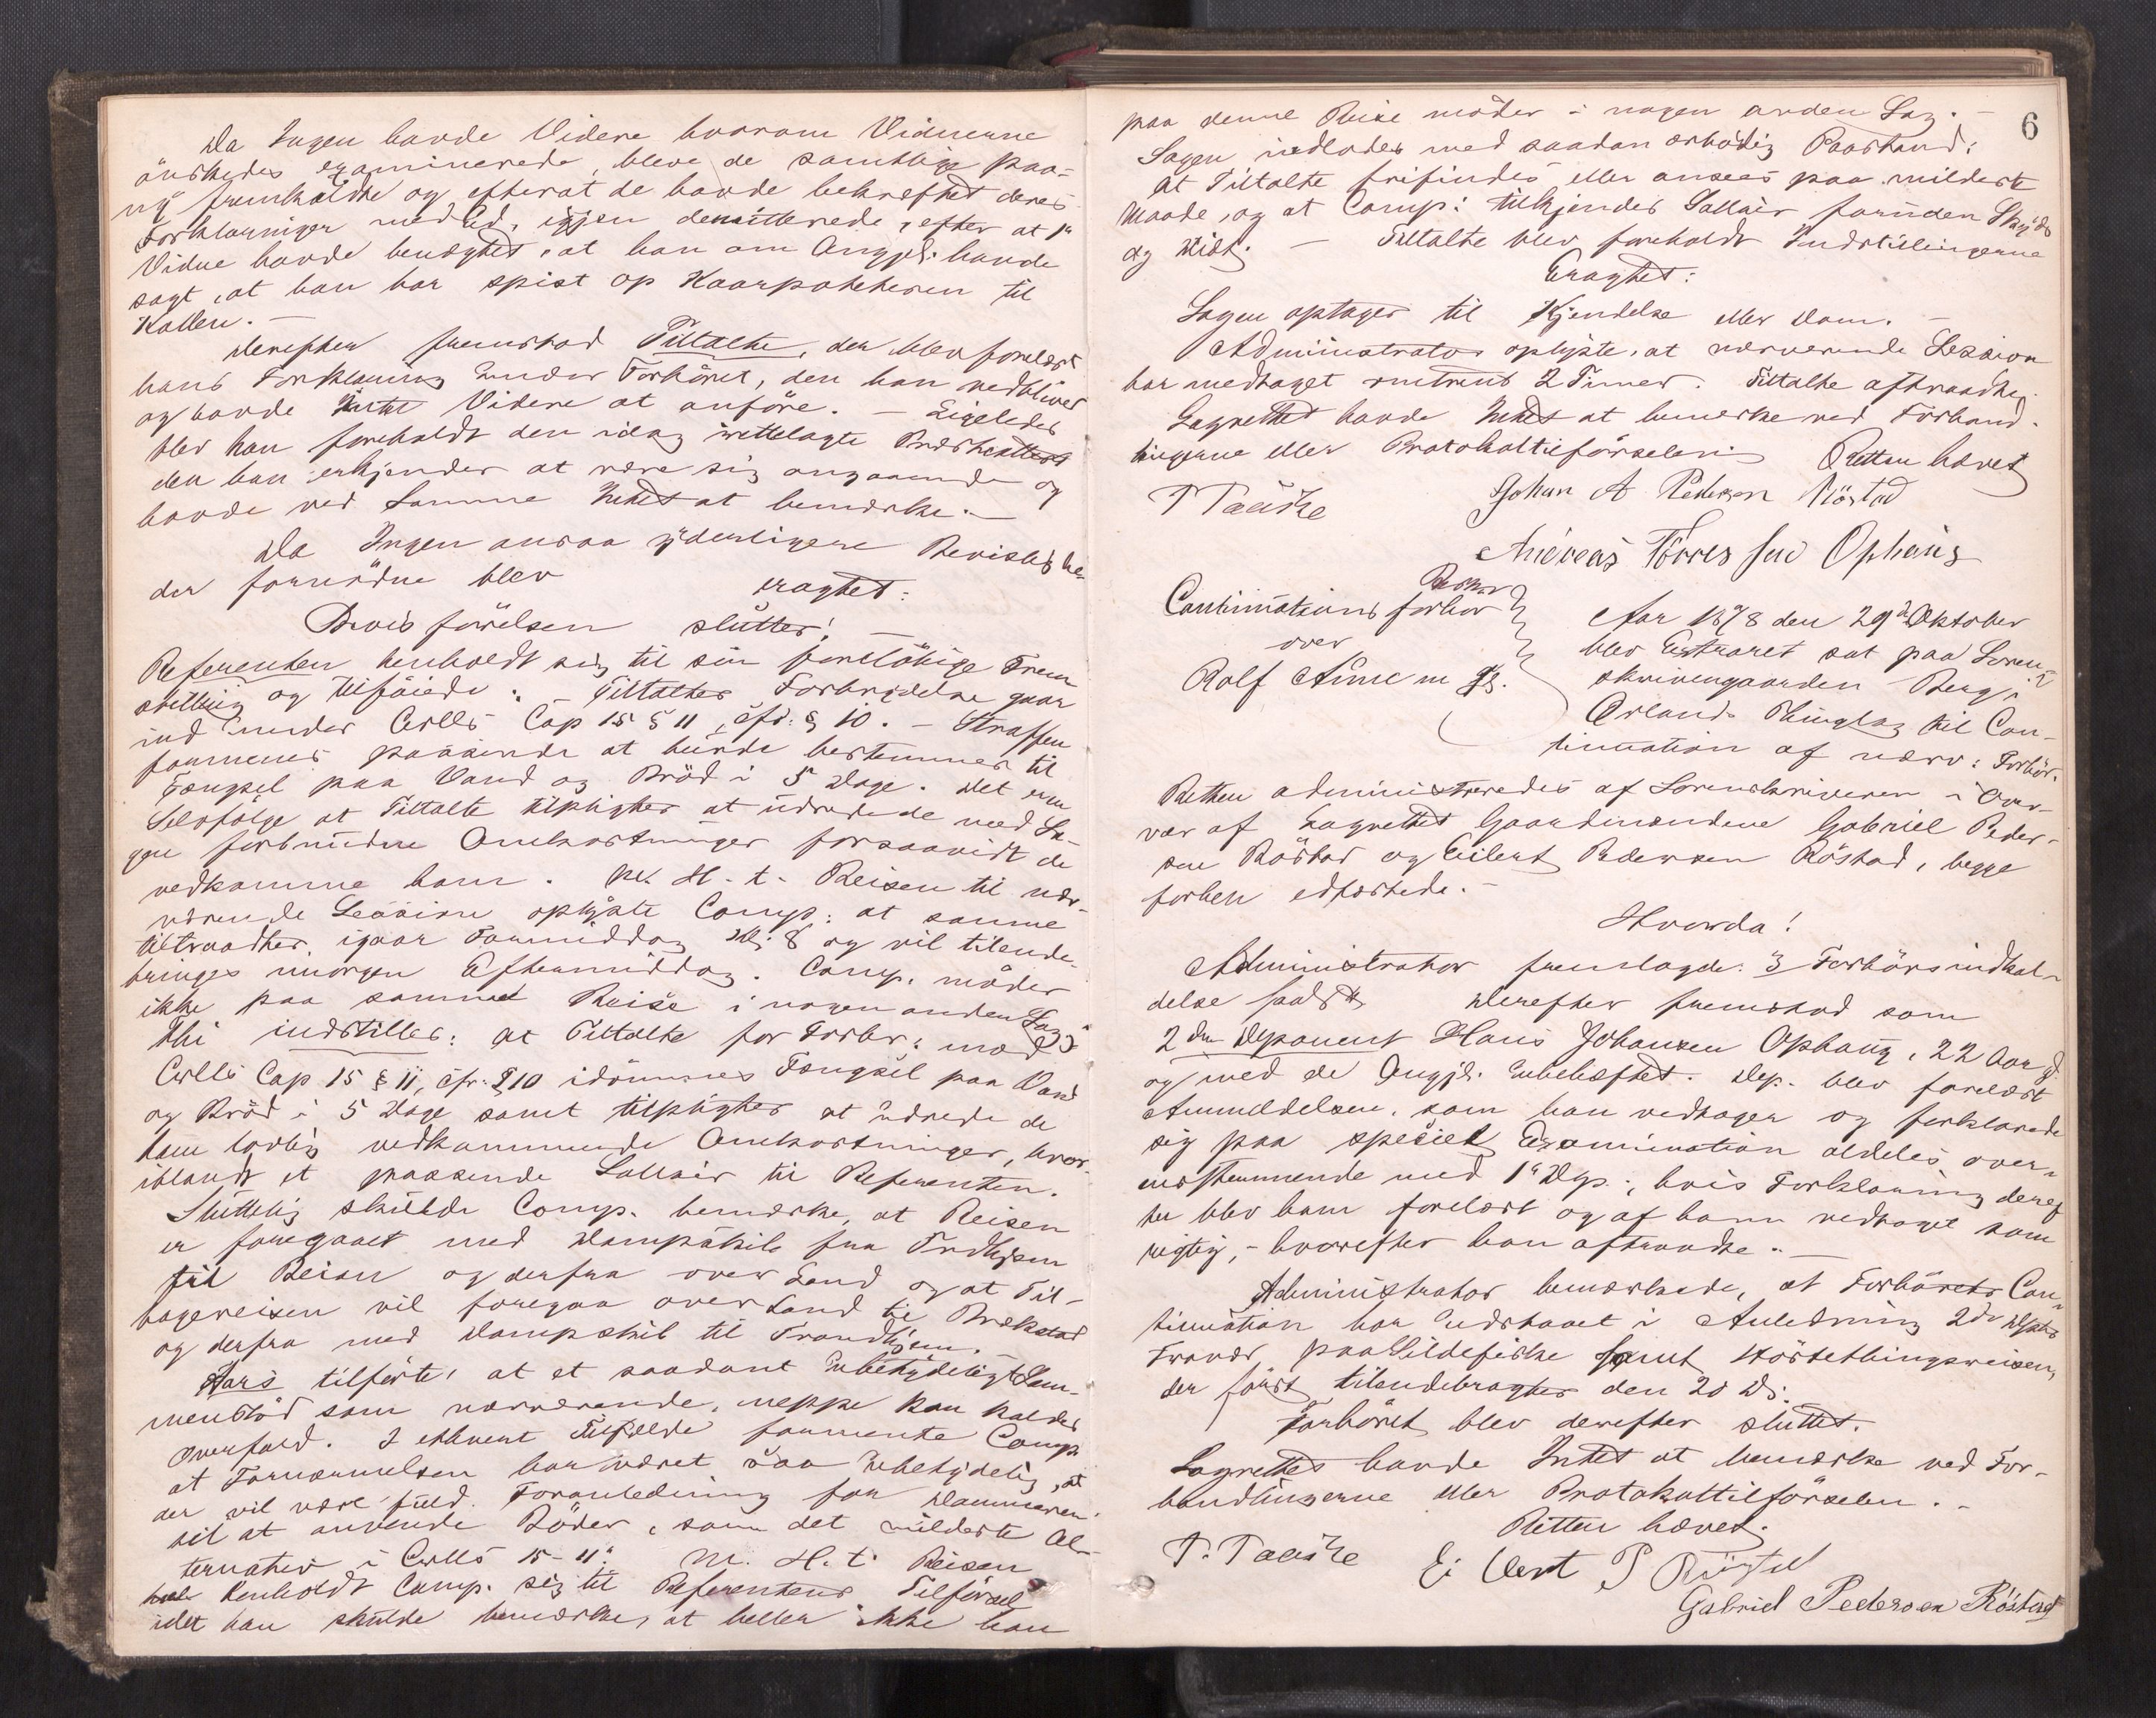 Da Ingen havde Videre hvorom Vidnerne
önskedes examinerede, bleve de samtlige paa-
ny fremkaldte og efterat de havde bekreftet deres
Forklaringer med Ed, igjen demitterede, efter at 1ste
Vidne havde benegtet, at han om Angjd. havde
sagt, at han har spist op Kaarpotteren til
Kallen. —
Derefter fremstod Tiltalte, der blev forelæst
hans Forklaring under Forhöret, den han vedbliver
og havde Intet Videre at anföre. — Ligeledes
blev han foreholdt den idag irettelagte Præsteattest
den han erkjender at være sig angaaende og
havde ved Samme Intet at bemærke. —
Da Ingen ansaa yderligere Bevisligheder
der fornödne blev eragtet:
Bevisförelsen sluttes! —
Referenten henholdt sig til sin foreløbige Frem
stilling og tilföiede: — Tiltaltes Forbrydelse gaar
ind under Crlls Cap 15 § 11, cfr: § 10. — Straffen
formenes passende at burde bestemmes til
Fængsel paa Vand og Bröd i 5 Dage. Det er en
Selvfölge at Tiltalte tilpligtes at udrede de med Sa-
gen forbundne Omkostninger forsaavidt de
vedkomme ham. M. H. t. Reisen til nær-
værende Session oplyste Comp: at samme
tiltraadtes igaar Formiddag Kl: 8 og vil tilende-
bringes imorgen Eftermiddag. Comp. möder
ikke paa samme Reise i nogen anden Sag.
Thi indstilles: at Tiltalte for Forbr: mod
Crlls Cap 15 § 11, cfr: § 10 idömmes Fængsel paa Vand
og Bröd i 5 Dage samt tilpligtes at udrede de
ham lovlig vedkommende Omkostninger, hvor-
iblandt et passende Sallair til Referenten.
Sluttelig skulde Comp. bemærke, at Reisen
er foregaaet med Dampskib fra Trdhjem
til Beian og derfra over Land og at Til-
bagereisen vil foregaa over Land til Brækstad
og derfra med Dampskib til Trondhjem.
Fors tilförte, at et saadant ubetydeligt Sam-
menstöd som nærværende, neppe kan kaldes
Overfald. I ethvert Tilfælde formente Comp
at Fornærmelsen har været saa ubetydelig, at
der vil være fuld Foranledning for Dommeren
til at anvende Böder, som det mildeste Al-
ternativ i Crlls 15-11. M. H. t. Reisen
henholdt Comp. sig til Referentens Tilförsel
idet han skulde bemærke, at heller ikke han
6
paa denne Reise möder i nogen anden Sag. —
Sagen indlodes med saadan ærbödig Paastand:
at Tiltalte frifindes eller ansees paa mildeste
Maade, og at Comp: tilkjendes Sallair foruden Skyds
og Diæt. — Tiltalte blev foreholdt Indstillingerne
Eragtet:
Sagen optages til Kjendelse eller Dom. —
Administrator oplyste, at nærværende Session
har medtaget omtrent 2 Timer. Tiltalte aftraadte.
Lagrettet havde Intet at bemærke ved Forhand-
lingerne eller Protokoltilförselen Retten hævet
T Taaske
Johan A Pedersen Röstad
Andreas Törres sen Ophaug
Continuationsforhör
over
Rolf Arne m fl.
Aar 1878 den 29de Oktober
blev Extraret sat paa Soren-
skrivergaarden Berg i
Örlands Thinglag til Con-
tinuation af nærv: Forhör.
Retten administreredes af Sorenskriveren i Over-
vær af Lagrettet Gaardmændene Gabriel Peder-
sen Röstad og Eilert Pedersen Röstad, begge
forhen edfæstede. —
Hvorda!
Administrator fremlagde 3 Forhörsindkal-
delse Derefter fremstod som
2den Deponent Hans Johansen Ophaug, 22 Aar gl.
og med de Angjd. ubeslægtet. Dep. blev forelæst
Anmeldelsen, som han vedtager og forklarede
sig paa speciel Examination aldeles over-
ensstemmende med 1ste Dep., hvis Forklaring deref-
ter blev ham forelæst og af ham vedtaget som
rigtig, — hvorefter han aftraadte. —
Administrator bemærkede, at Forhörets Con-
tinuation har udstaaet i Anledning 2den Dpts
Fravær paa Sildefiske samt Höstethingsreisen,
der först tilendebragtes den 20 Ds.
Forhöret blev derefter sluttet.
Lagrettet havde Intet at bemærke ved For-
handlingerne eller Protokoltilförselen. —
Retten hævet.
T. Taaske Ei lert P Röstad
Gabriel Pedersen Röstad